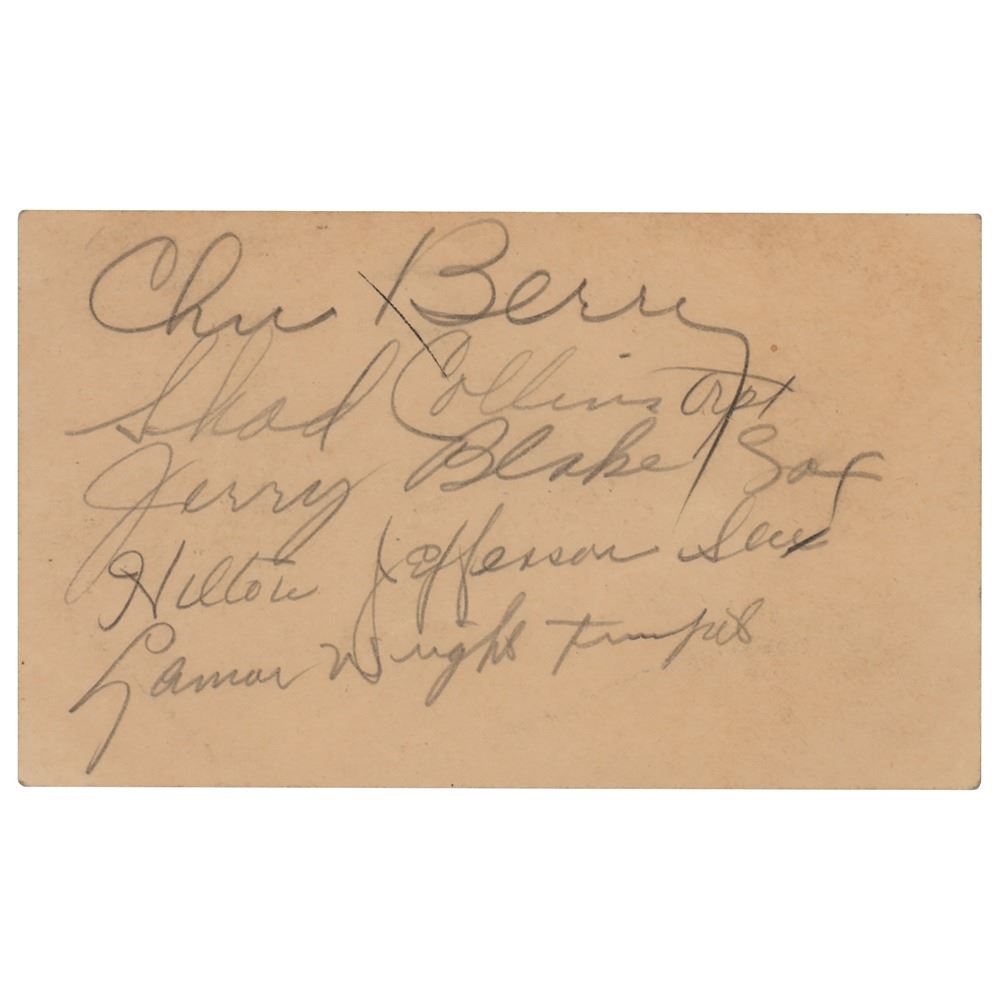 Chu Berry
Shad Collins Trpt
Jerry Blake Sax
Hilton Jefferson Sax
Lamar Wright trumpet